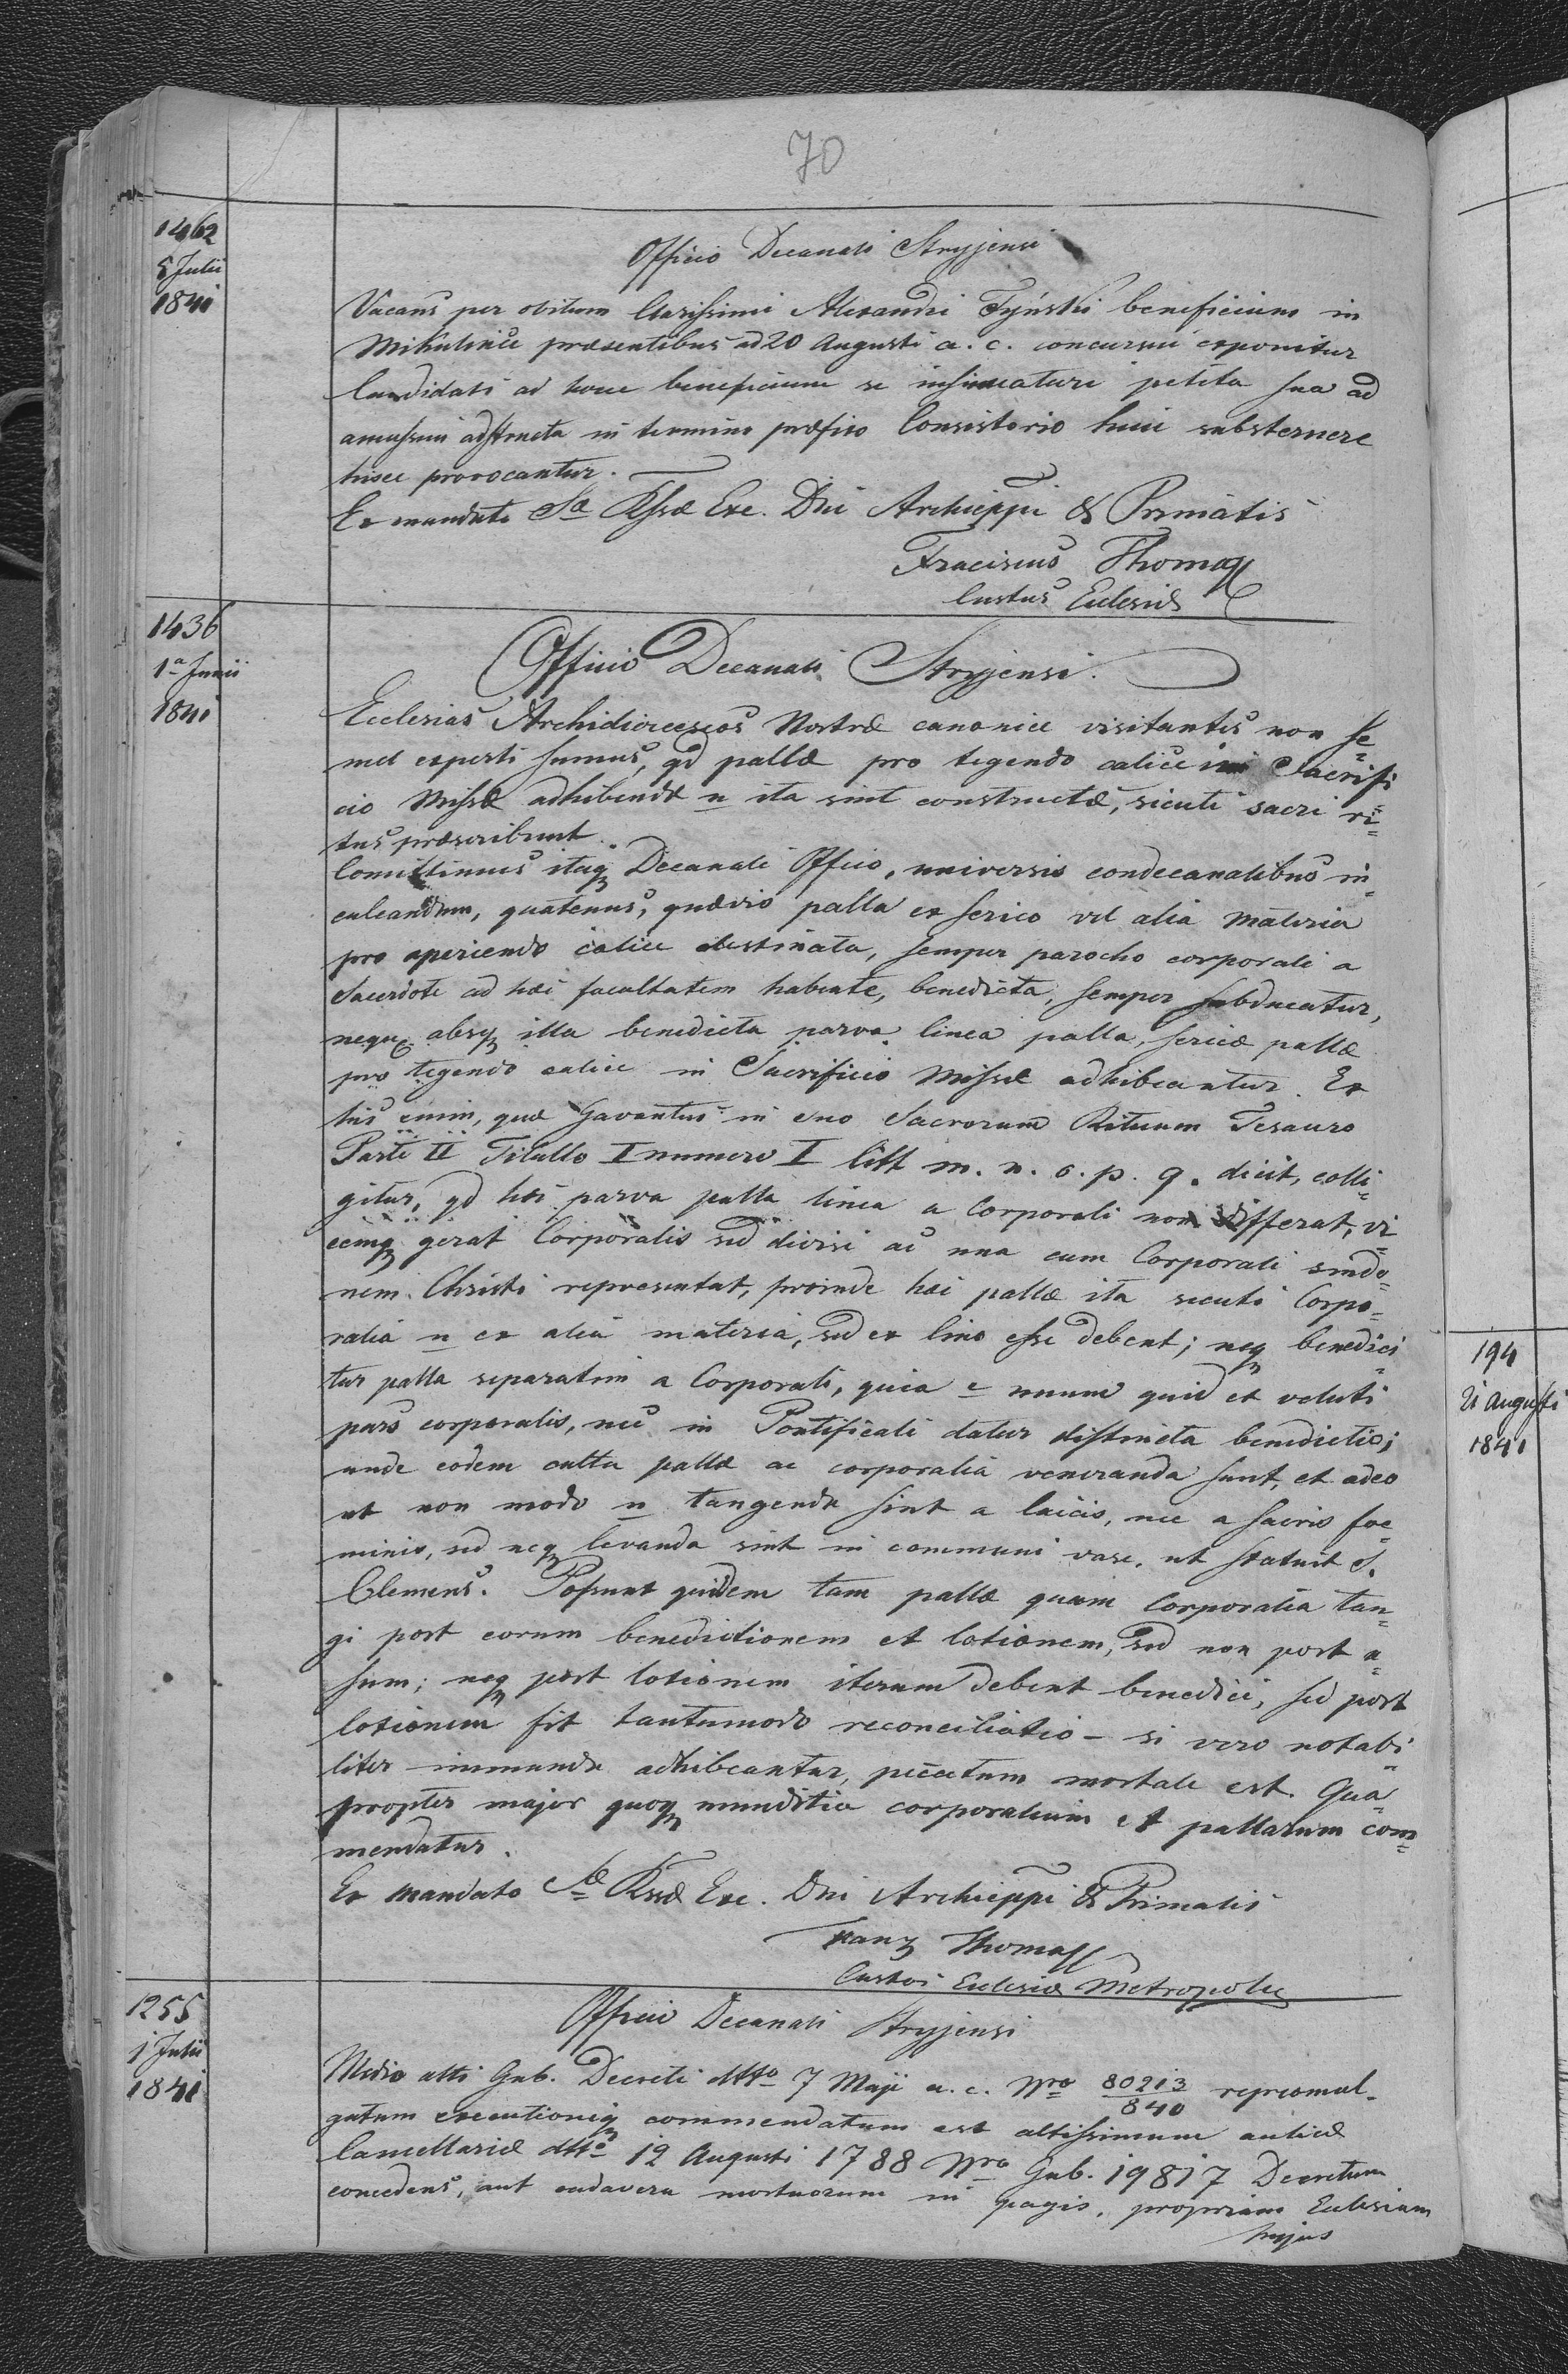 70
1462
5 Julii
1841
Officio Decanali Stryjensi
Vacans per obitum Clarissimi Alexandri Tyński beneficium in
Mikulince praesentibus ad 20 Augusti a. c. concursui exponitur
Candidati ad hocce beneficium se insinuaturi petita sua ad
amussim adstructa in termino praefixo Consistorio huic substernere
hisce provocantur.
Ex mandato Sae Rssae Exc. Dni Archieppi & Primatis
Fraciscus Thoma
Custus Eclesiae
1436
1a Junii
1841
Officio Decanali Stryjensi.
Ecclesias Archidioeceseos Nostrae canonice visitantes non se=
mel experti sumus, qd pallae pro tegendo calice in Sacrifi
cio Missae adhibendae n ita sint constructae, sicuti sacri ri=
tus praescribunt.
Comittimus itaq Decanali Officio, universis condecanalibus in=
culcandum, quatenus, quaevis palla ex serico vel alia materia
pro aperiendo calice destinata, semper parocho corporali a
Sacerdote ad hoc facultatem habente, benedicta, semper subducatur,
neque absq illa benedicta parva linea palla, sericae pallae
pro tegendo calice in Sacrificio Missae adhibeantur. Ex
his enim, quae Gavantus in suo Sacrorum Rituum Tesauro
Parte II Titullo I numero I litt m. n. o. p. q. dicit, colli=
gitur, qd hoc parva palla linea a Corporali non differat, vi=
cemq gerat Corporalis sed divisi ac una cum Corporali sindo=
nem Christi representat, proinde hac pallae ita sicuti Corpo=
ralia n ex alia materia, sed ex lino esse debent; neq benedici=
tur palla separatim a Corporali, quia e unum quid et veluti
pars corporalis, nec in Pontificali datur distincta benedictio;
unde eodem cultu pallae ac corporalia veneranda sunt, et adeo
ut non modo n tangenda sint a laicis, nec a sacris foe=
minis, sed neq levanda sint in communi vase, ut statuit S.
Clemens. Possunt quidem tam pallae quam Corporalia tan=
gi post eorum benedictionem et lotionem, sed non post u=
sum; neq post lotionem iterum debent benedici, sed post
lotionem fit tantumodo reconciliatio – si vero notabi=
liter immunda adhibeantur, peccatum mortale est. Qua=
propter major quoq munditia corporalium et pallarum com=
mendatur.
Ex Mandato Sae Rssae Exc. Dni Archieppi & Primatis
Franz Thoma
Custos Eclesiae Metropolae
1255
1 Julii
1841
Officio Decanali Stryjensi
Medio alti Gub. Decreti ddto 7 Maji a. c. Nro 80213/840 repromul=
gatum executioniq commendatum est altissimum aulicae
Cancellariae ddto 12 Augusti 1788 Nro Gub. 19817 Decretum
concedens, aut cadavera mortuorum in pagis, propriam Eclesiam
hujus
194
21 Augusti
1841